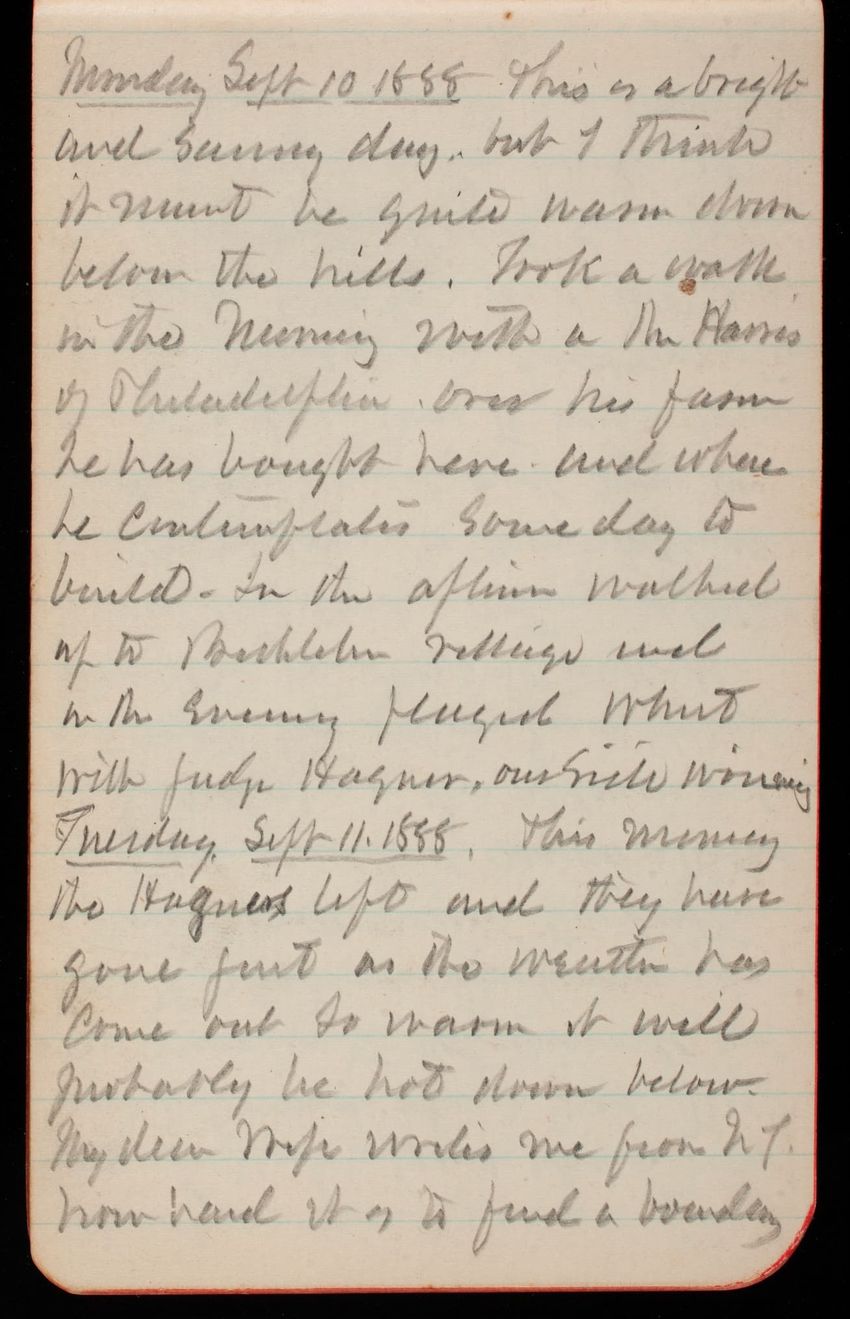 Monday Sept 10 1888 This is a bright
and Sunny day. but I think
it must be quite warm down
below the hills. Took a walk
in the Morning with a Mr Harris
of Philadelphia over his farm
he has bought here and where
he Contemplates Some day to
build - In the aftnn walked
up to Bethlehem village and
in the Evening played Whist
with Judge Hagner, our Side winning
Tuesday, Sept 11. 1888, This morning
the Hagners left and they have
gone just as the weather has
Come out So warm it will
probably be hot down below.
My dear Wife writes me from N.Y.
how hard it is to find a boarding